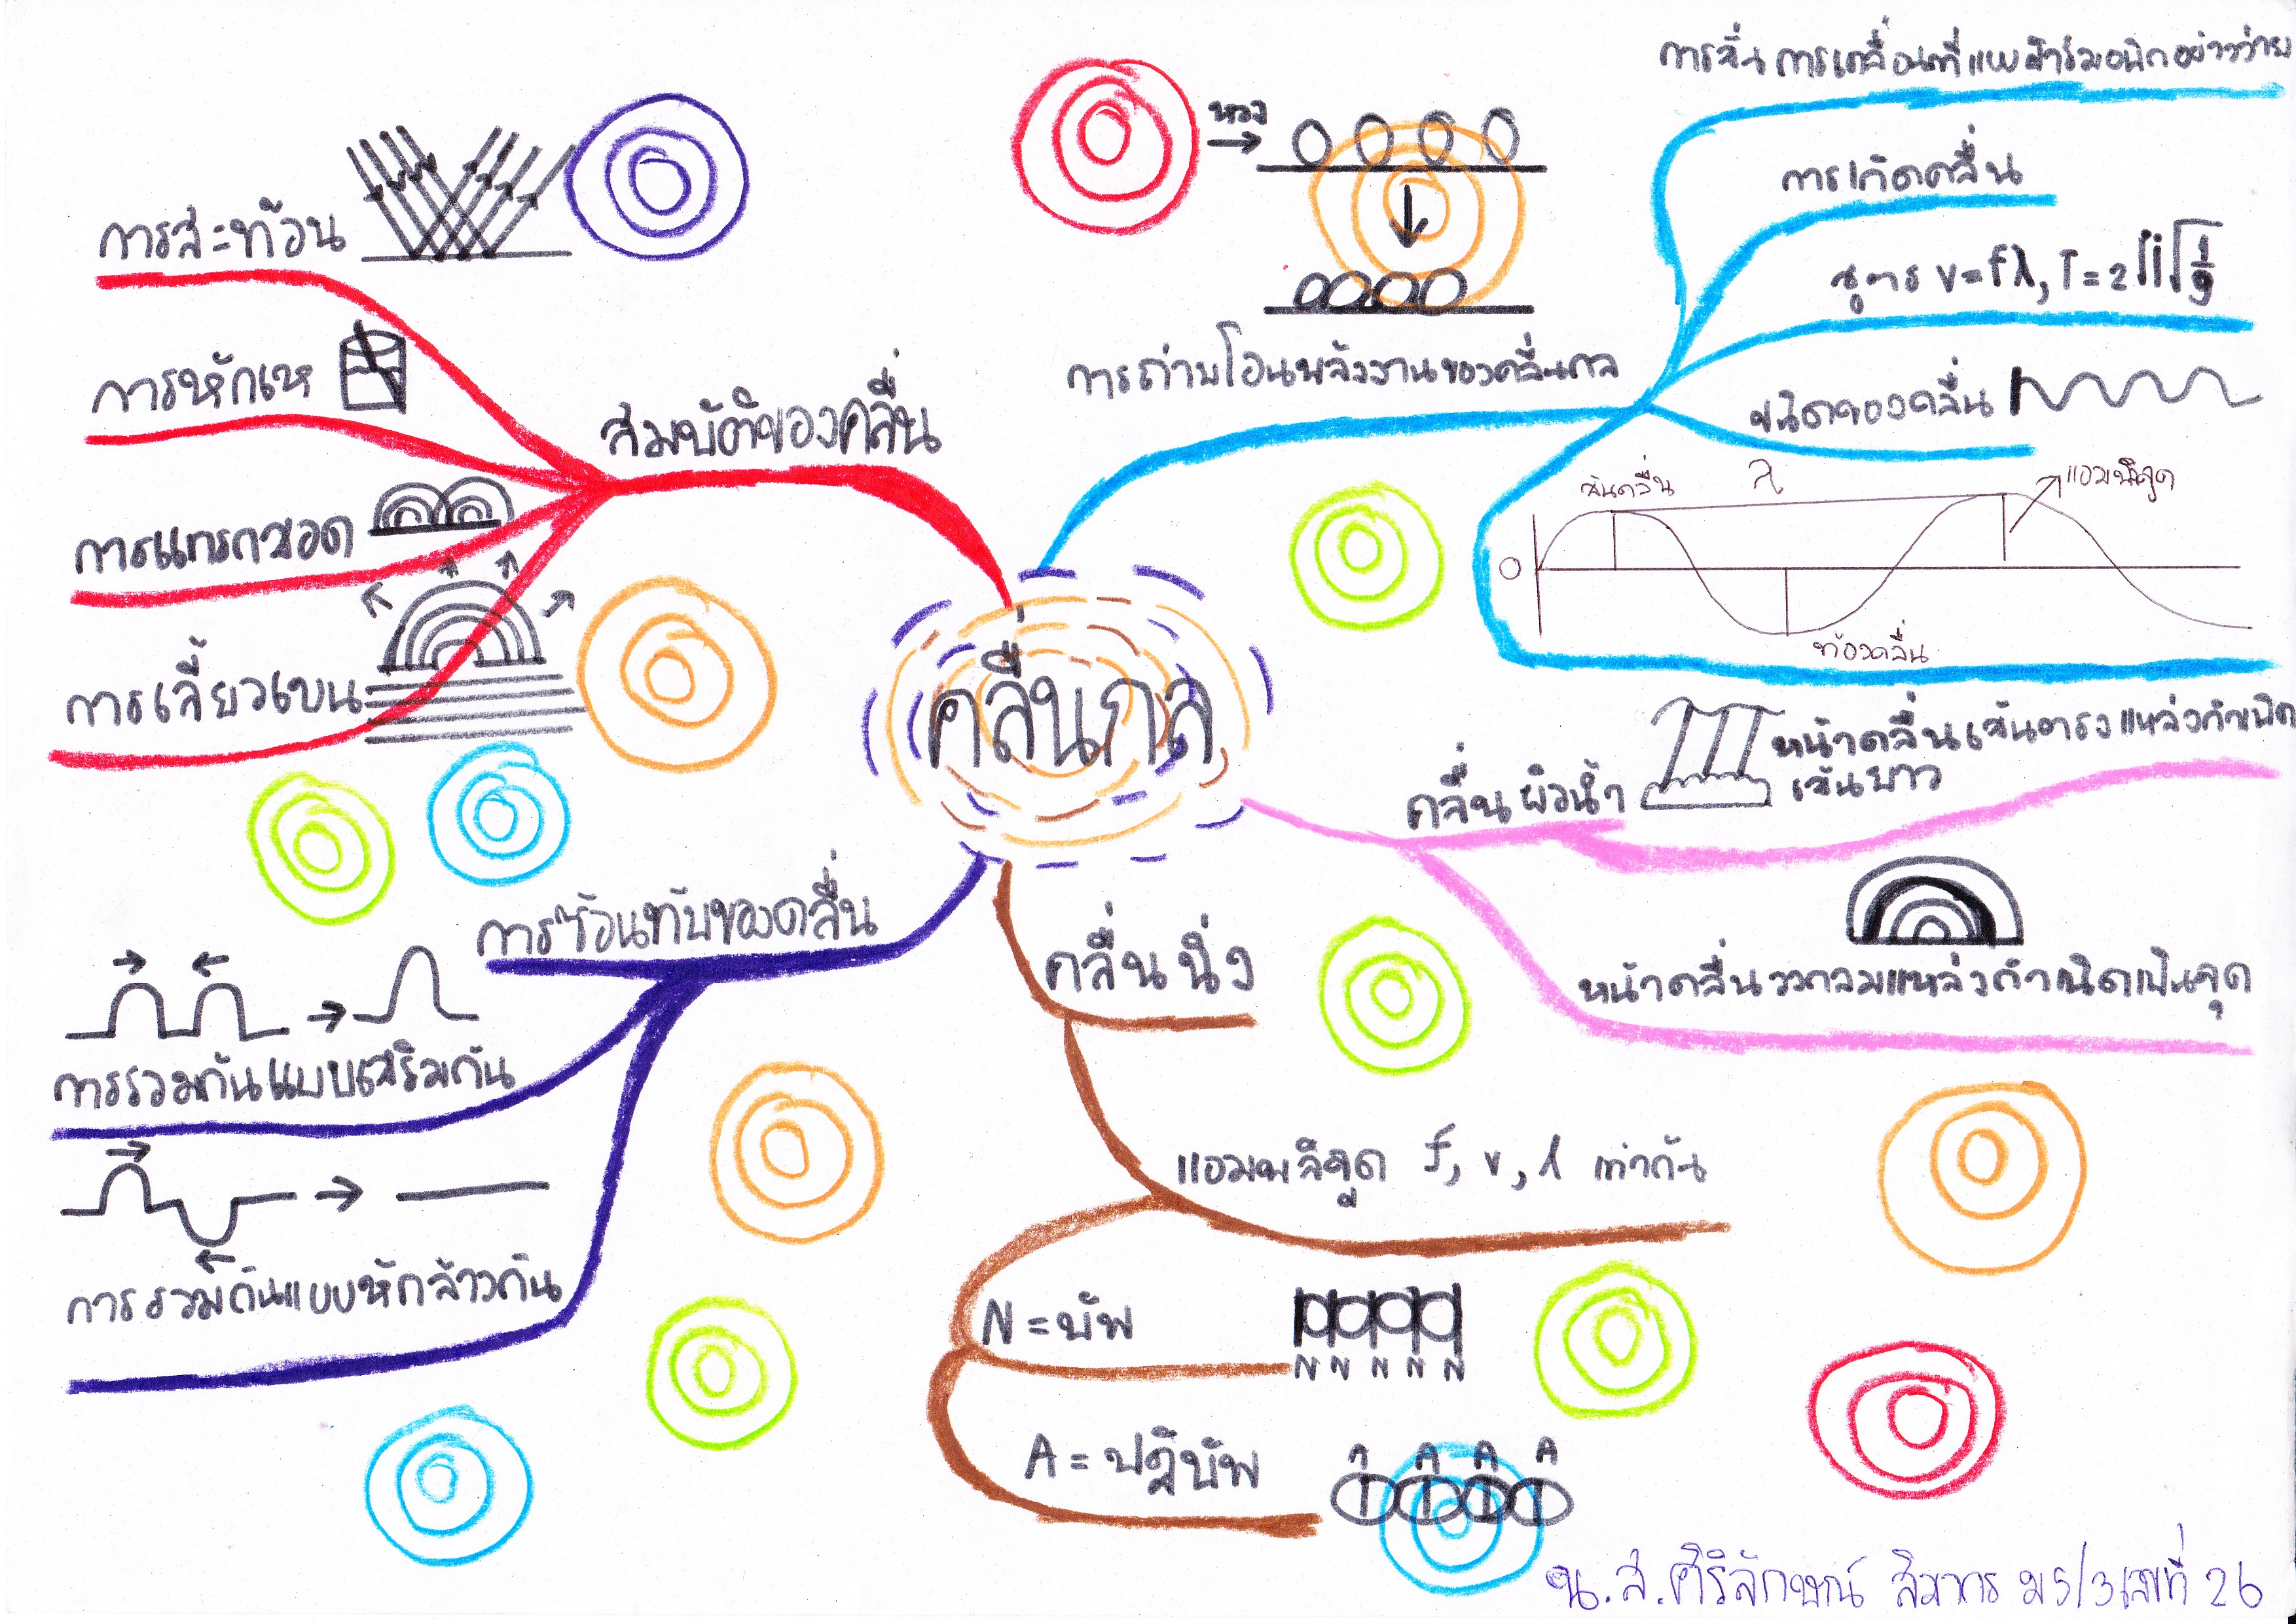 คลื่นกล
สมบัติของคลื่น
การสะท้อน
การหักเห
การแทรกสอด
การเลี้ยวเบน
การถ่ายโอนพลังงานของคลื่นกล
การสั่น การเคลื่อนที่แบบฮาร์มอนิกอย่างง่าย
การเกิดคลื่น
สูตร v=fλ, T=2π√l/g
ชนิดของคลื่น
สันคลื่น
λ
แอมพลิจูด
0
ท้องคลื่น
คลื่นผิวน้ำ
หน้าคลื่นเส้นตรงแหล่งกำเนิด
เส้นยาว
หน้าคลื่นวงกลมแหล่งกำเนิดเป็นจุด
การซ้อนทับของคลื่น
การรวมกันแบบเสริมกัน
การรวมกันแบบหักล้างกัน
คลื่นนิ่ง
แอมพลิจูด f, v, λ เท่ากัน
N = บัพ
N N N N N
A = ปฏิบัพ
A A A A
น.ส.ศิริลักษณ์ ม5/3 เลขที่ 26